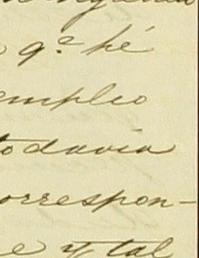 q.e hé
empleo
todavia
correspon-
e y tal